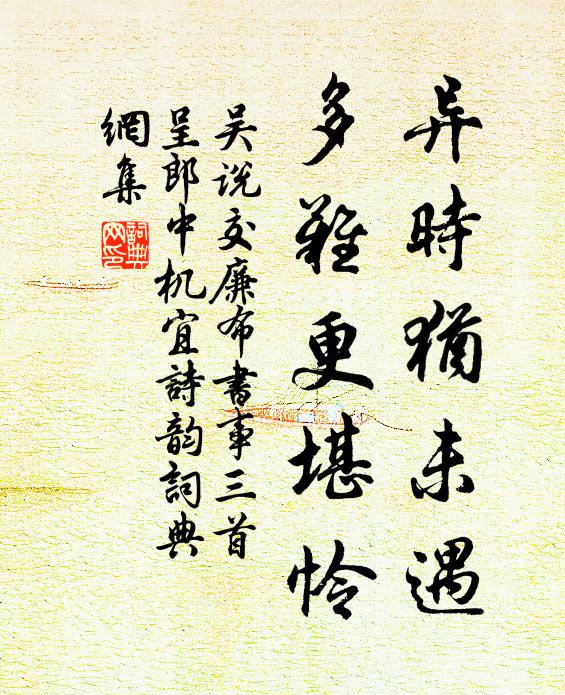 异時猶未遇
多難更堪怜
吴说交廉布書事三首
呈郎中机宜詩韵詞典
網集
詞典网印